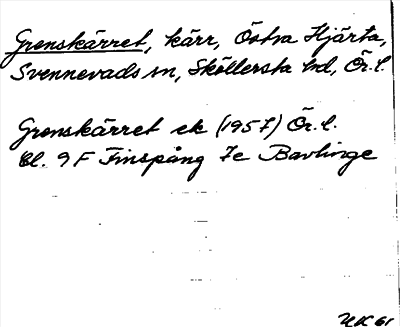 Grenskärret, kärr, Östra Hjärta,
Svennevads sn, Sköllersta hd, Ör.l.
Grenskärret ek (1957) Ör.l.
Bl. 9F Finspång 7e Bavlinge
61